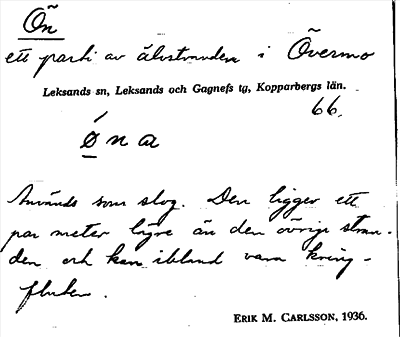 Ön
ett parti av älvstranden i Övermo
Leksands sn, Leksands och Gagnefs tg, Kopparbergs län.
66.
ǿna
Används som slog. Den ligger ett
par meter lägre än den övriga stran-
den och kan ibland vara kring-
fluten.
ERIK M. CARLSSON, 1936.